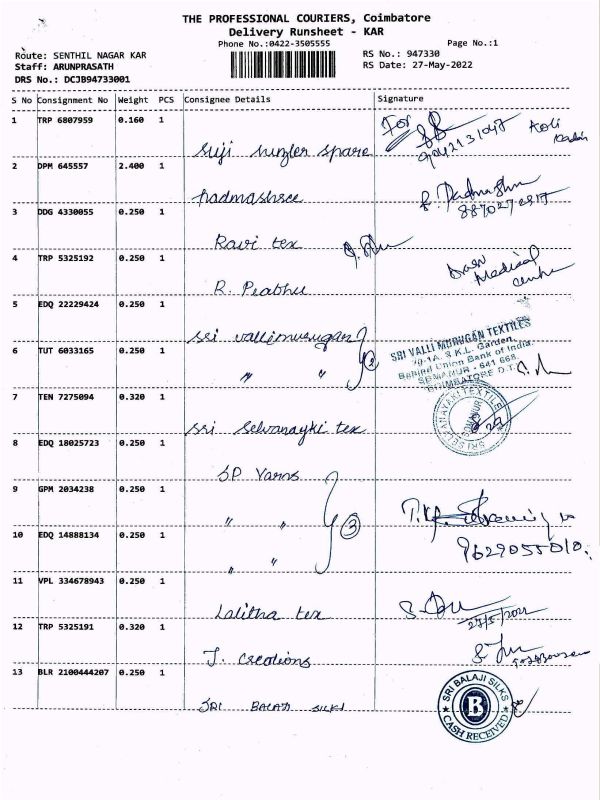 THE PROFESSIONAL COURIERS, Coimbatore
Delivery Runsheet - KAR
Phone No.:0422-3505555
Page No.:1
Route: SENTHIL NAGAR KAR
RS No.: 947330
Staff: ARUNPRASATH
RS Date: 27-May-2022
DRS No.: DCJB94733001
S No Consignment No Weight PCS Consignee Details Signature
1 TRP 6807959 0.160 1
For
9042131047
suji spare
2 DPM 645557 2.400 1
padmashree
8870272817
3 DDG 4330055 0.250 1
Ravi tex
4 TRP 5325192 0.250 1
Medical
centre
R. Prabhu
5 EDQ 22229424 0.250 1
sri vallimurugan
SRI VALLI MURUGAN TEXTILES
79-1A, S K.L. Garden,
Behind Union Bank of India,
SOMANUR - 641 668.
COIMBATORE D.T.
6 TUT 6033165 0.250 1
" "
2
7 TEN 7275094 0.320 1
sri selvanayki tex
SRI SELVANAYAKI TEXTILE
SOMANUR
8 EDQ 18025723 0.250 1
SP Yarns
9 GPM 2034238 0.250 1
" "
3
10 EDQ 14888134 0.250 1
9629055010
" "
11 VPL 334678943 0.250 1
Lalitha tex
27/5/2022
12 TRP 5325191 0.320 1
J. Creations
13 BLR 2100444207 0.250 1
SRI BALAJI SILKS
SRI BALAJI SILKS
B
CASH RECEIVED